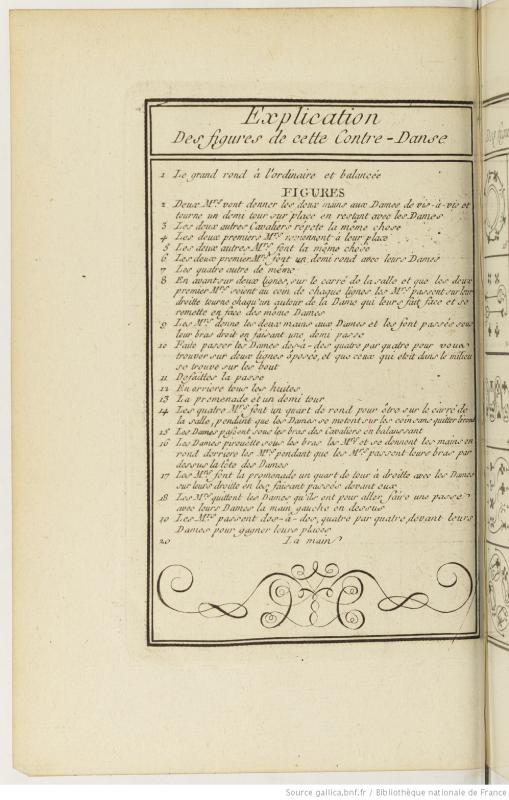 Explication
Des figures de cette Contre-Danse
1 Le grand rond à l'ordinaire et balancée
FIGURES
2 Deux Mrs vont donner les deux mains aux Dames de vis-à-vis et
tourne un demi tour sur place en restant avec les Dames
3 Les deux autres Cavaliers répete la même chose
4 Les deux premiers Mrs reviennent à leur place
5 Les deux autres Mrs font la même chose
6 Les deux premier Mrs font un demi rond avec leurs Dames
7 Les quatre autre de même
8 En avant sur deux lignes, sur le carré de la salle et que les deux
premier Mrs soient au coin de chaque lignes les Mrs passent sur leur
droitte tourne chaqu'un autour de la Dame qui leurs fait face et se
remette en face des même Dames
9 Les Mrs donne les deux mains aux Dames et les font passés sous
leur bras droit en faisant une demi passe
10 Faite passer les Dames dos-à-dos quatre par quatre pour vous
trouver sur deux lignes oposée, et que ceux qui étoit dans le milieu
se trouve sur les bout
11 Défaittes la passe
12 En arriere tous les huites
13 La promenade et un demi tour
14 Les quatre Mrs font un quart de rond pour être sur le carré de
la salle, pendant que les Dames se metent sur les coin sans quitter
15 Les Dames passent sous les bras des Cavaliers en balanssant
16 Les Dames pirouette sous les bras les Mrs et se donnent les mains en
rond derriere les Mrs pendant que les Mrs passent leurs bras par
dessus la tête des Dames
17 Les Mrs font la promenade un quart de tour à droitte avec les Dames
sur leurs droitte en les faisant passés devant eux
18 Les Mrs quittent les Dames qu'ils ont pour aller faire une passe
avec leurs Dames la main gauche en dessus
19 Les Mrs passent dos-à-dos, quatre par quatre, devant leurs
Dames pour gagner leurs places
20 La main
Source gallica.bnf.fr / Bibliothèque nationale de France